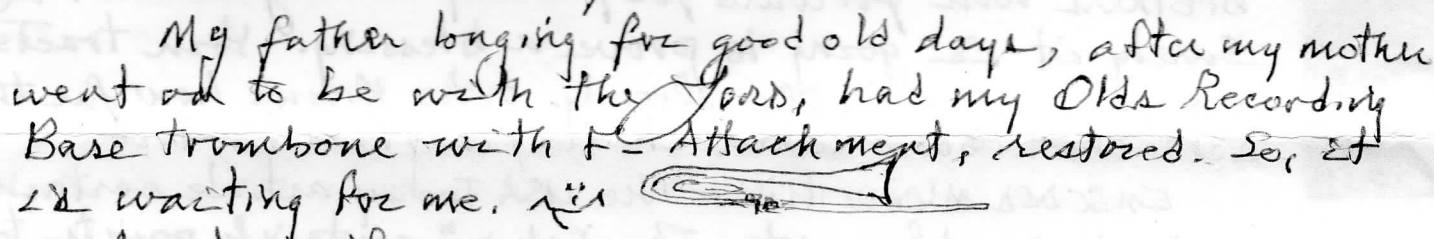 My father longing for good old days, after my mother
went on to be with the Lord, had my Olds Recording
Base trombone with F- Attachment, restored. So, it
is waiting for me.